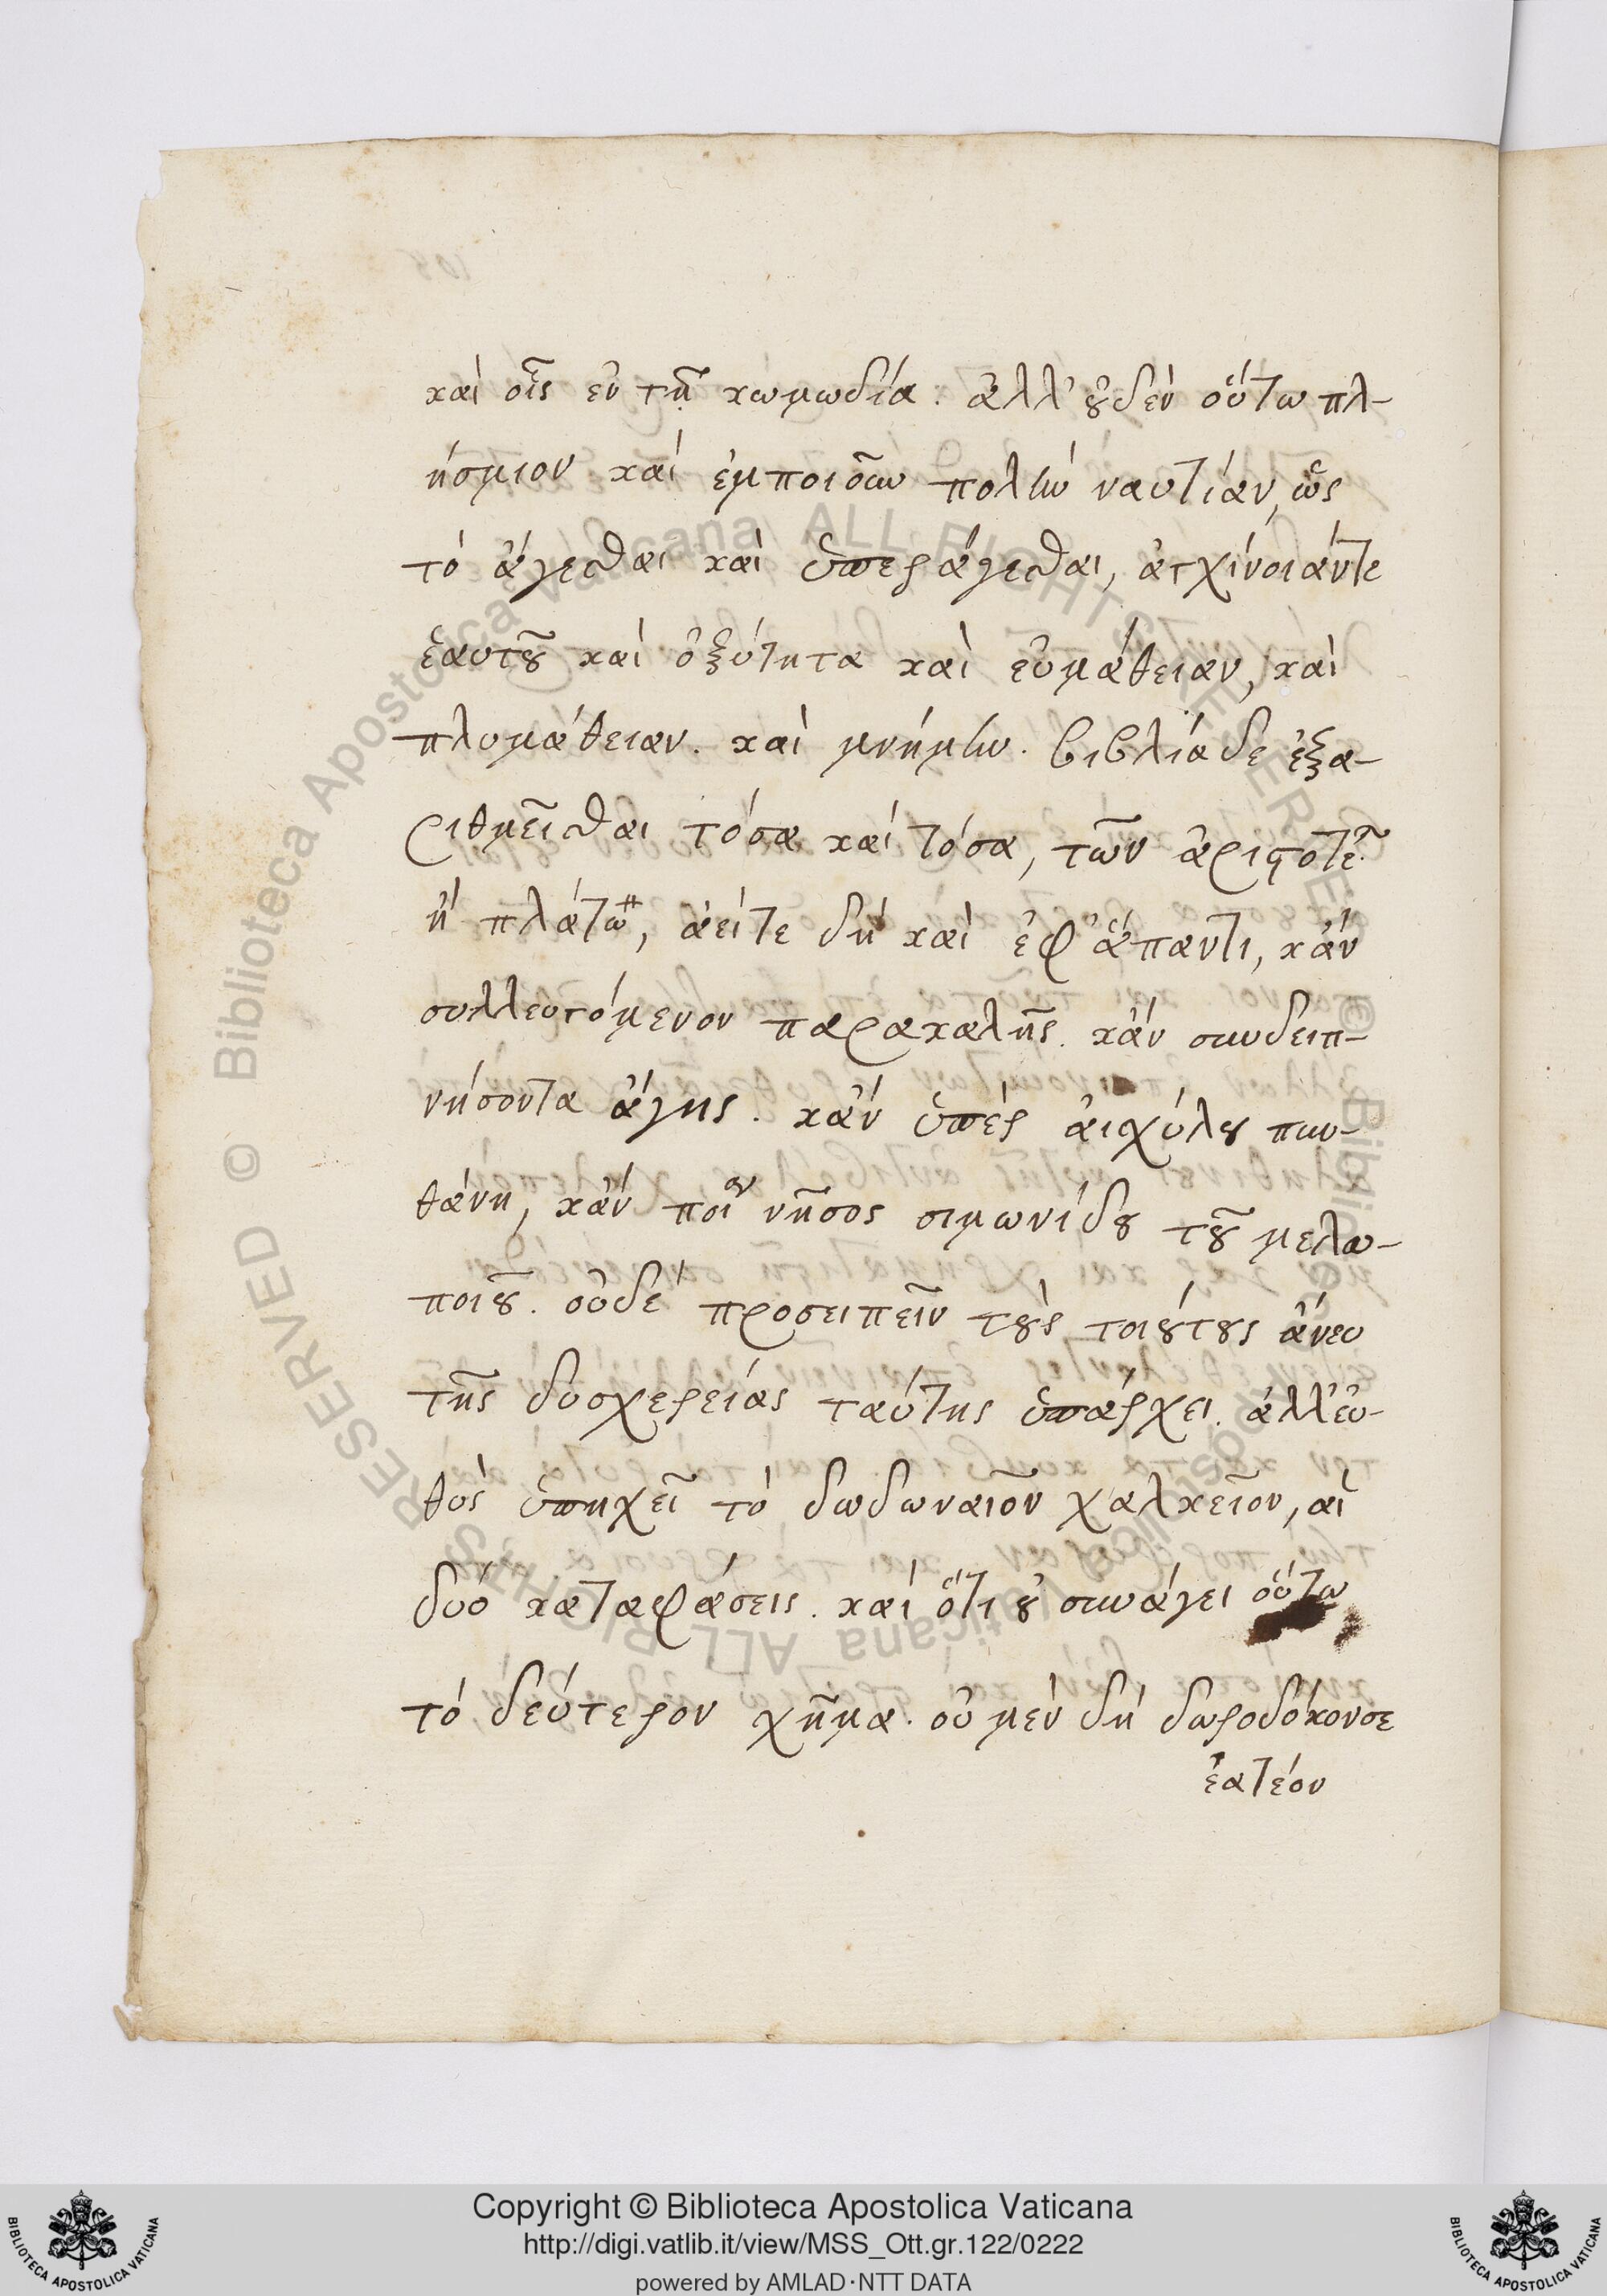 καὶ οἷς ἐν τῇ κωμωδία. ἀλλ' οὐδὲν οὕτω πλ-
ήσμιον καὶ ἐμποιοῦν πολλὴν ναυτίαν, ὡς
τὸ ἄγεσθαι καὶ ὑπεράγεσθαι, ἀγχίνοιάντε
ἑαυτοῦ καὶ ὀξύτητα καὶ εὐμάθειαν, καὶ
πλυμάθειαν. καὶ μνήμην. βιβλία δε ἐξα-
ριθμεῖσθαι τόσα καὶ τόσα, τῶν ἀριστοτέ
ἢ πλάτω, ἀείτε δὴ καὶ ἐφ' ἅπαντι, κἂν
συλλευσόμενον παρακαλῆς. κἂν συνδειπ-
νήσοντα ἄγης. κἂν ὑπὲρ αἰσχύλου πυν-
θάνη, κἂν ποῖον νῆσος σιμωνίδου τοῦ μελω-
ποιοῦ. οὐδὲ προσειπεῖν τοὺς τοιούτους ἄνευ
τῆς δυσχερείας ταύτης ὑπάρχει. ἀλλ' εὐ-
θὺς ὑπηχεῖ τὸ δωδωναῖον χαλκεῖον, αἱ
δύο καταφάσεις. καὶ ὅτι οὐ συνάγει οὕτω
τὸ δεύτερον σχῆμα. οὐ μὲν δὴ δωροδόκονσε
ἐατέον
Copyright © Biblioteca Apostolica Vaticana
http://digi.vatlib.it/view/MSS_Ott.gr.122/0222
powered by AMLAD·NTT DATA
BIBLIOTECA APOSTOLICA VATICANA
BIBLIOTECA APOSTOLICA VATICANA
© Biblioteca Apostolica Vaticana ALL RIGHTS RESERVED
© Biblioteca Apostolica Vaticana ALL RIGHTS RESERVED